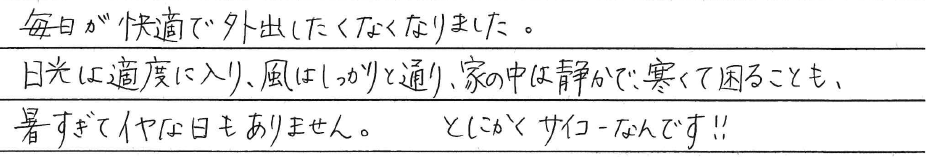 毎日が快適で外出したくなくなりました。
日光は適度に入り、風はしっかりと通り、家の中は静かで、寒くて困ることも、
暑すぎてイヤな日もありません。　とにかくサイコーなんです!!